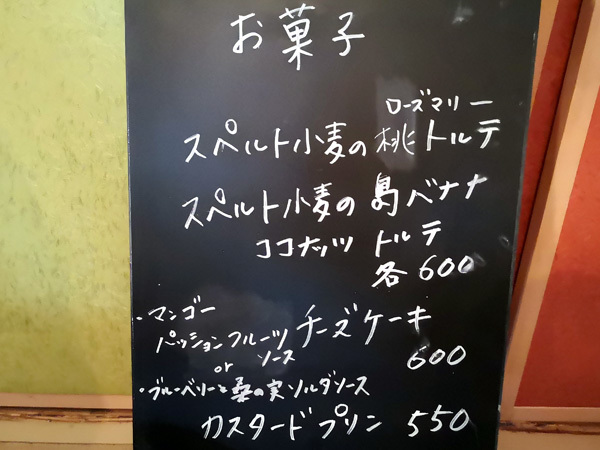 お菓子
ローズマリー
スペルト小麦の桃トルテ
スペルト小麦の島バナナ
ココナッツ トルテ
各600
・マンゴー
パッションフルーツ チーズケーキ
or ソース
600
・ブルーベリーと桑の実ソルダソース
カスタードプリン 550